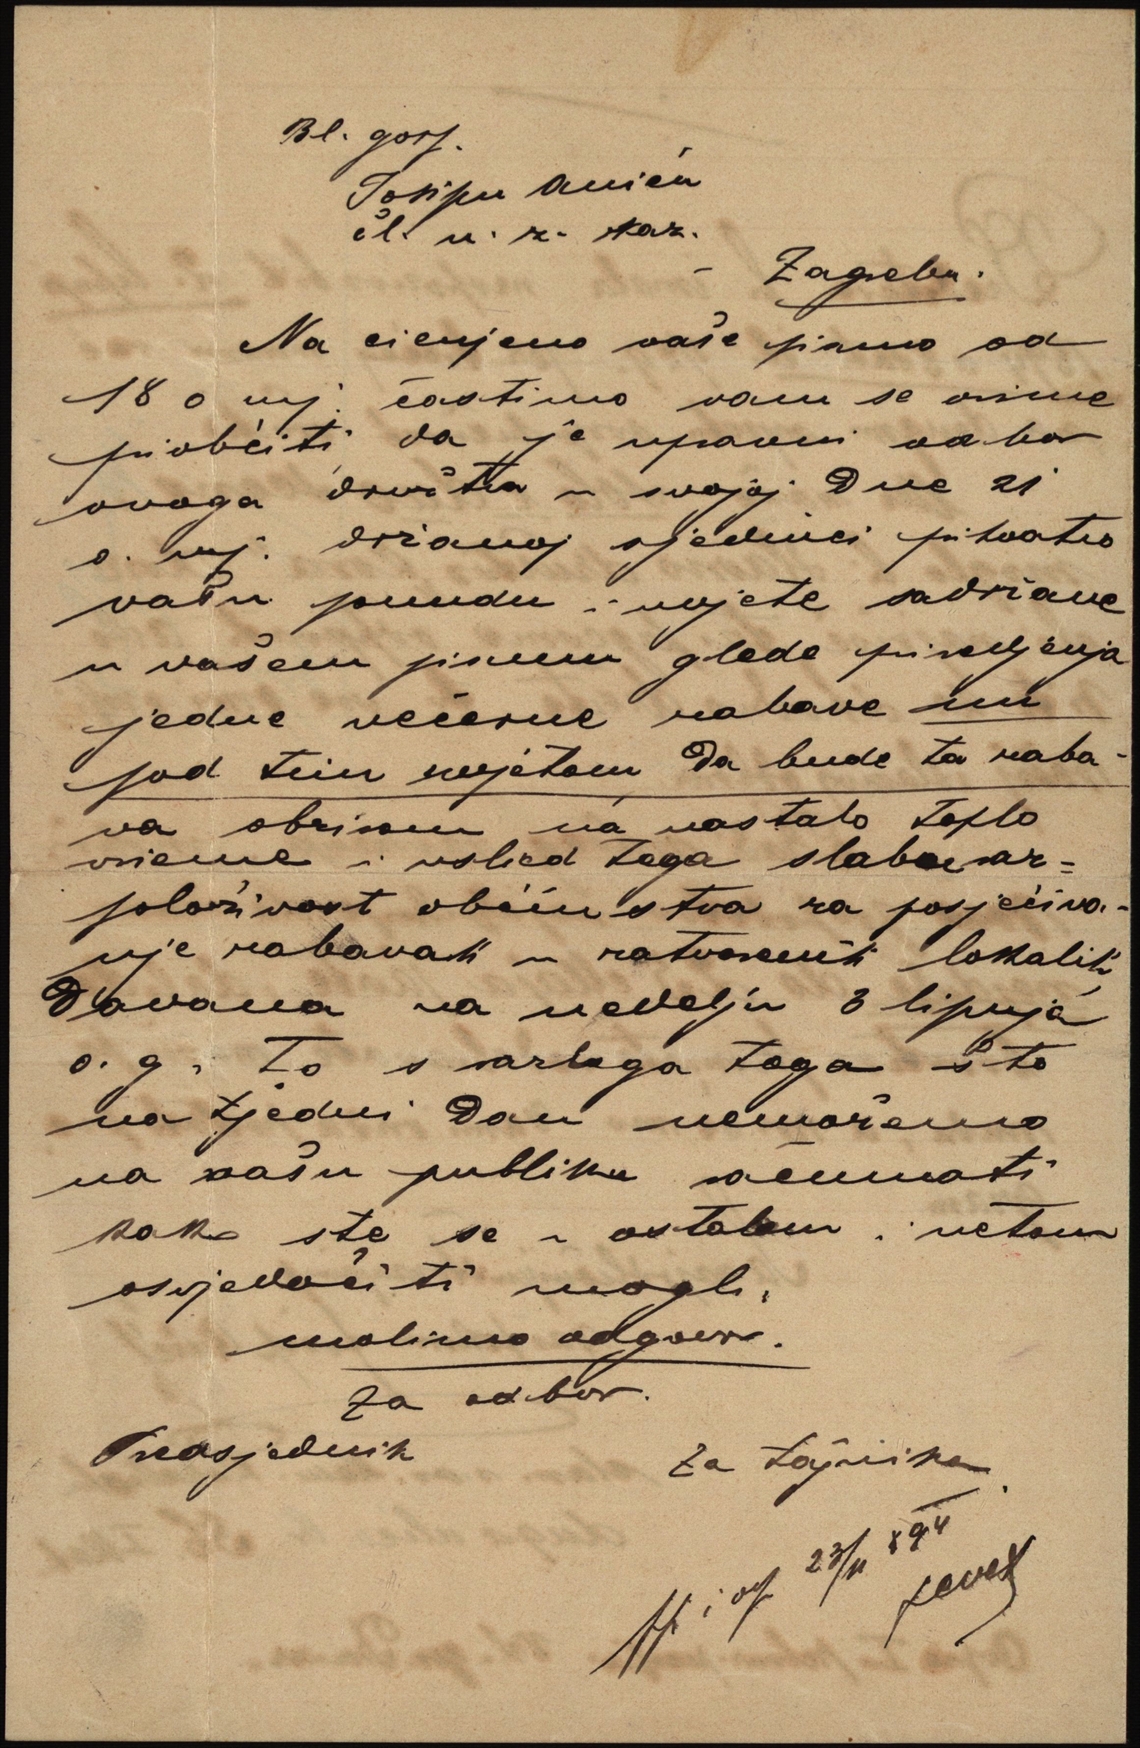 Bl. gosp.
Josipu Aniću
čl. n. z. kaz.
- Zagrebu.
Na cienjeno vaše pismo od
18 o mj. častimo vam se ovime
priobćiti da je upravni odbor
ovoga družtva u svojoj Dne 21
o. mj. držanoj sjednici prihvatio
vašu ponudu i uvjete sadržane
u vašem pismu glede priredjenja
jedne večerne zabave uz
pod tim uvjetom Da bude ta zaba-
va obzirom na nastalo toplo
vrieme i usljed toga slabu raz=
položivost obćinstva za posjećiva-
nje zabavah u zatvorenih lokalih
Davana na nedelju 3 lipnja
o. g. To s razloga toga što
na tjedni Dan nemožemo
na našu publiku računati
kako ste se u ostalom i
osvjedočiti mogli.
molimo odgovor.
Za odbor.
Predsjednik
Za tajnika
23/ 894